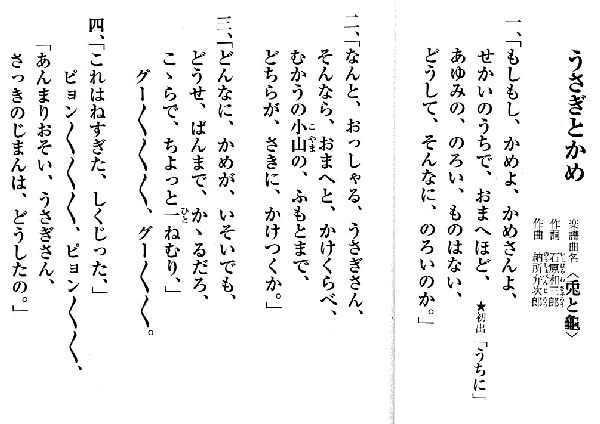 うさぎとかめ
楽譜曲名〈兎と龜〉
作詞 石原和三郎
作曲 納所弁次郎
一、「もしもし、かめよ、かめさんよ、
せかいのうちで、おまへほど、 ★初出「うちに」
あゆみの、のろい、ものはない、
どうして、そんなに、のろいのか。」
二、「なんと、おっしゃる、うさぎさん、
そんなら、おまへと、かけくらべ、
むかうの小山の、ふもとまで、
どちらが、さきに、かけつくか。」
三、「どんなに、かめが、いそいでも、
どうせ、ばんまで、かゝるだろ、
こゝらで、ちょっと一ねむり、」
グー〱〱〱、グー〱〱〱。
四、「これはねすぎた、しくじった、」
ピョン〱〱〱、ピョン〱〱〱、
「あんまりおそい、うさぎさん、
さっきのじまんは、どうしたの。」